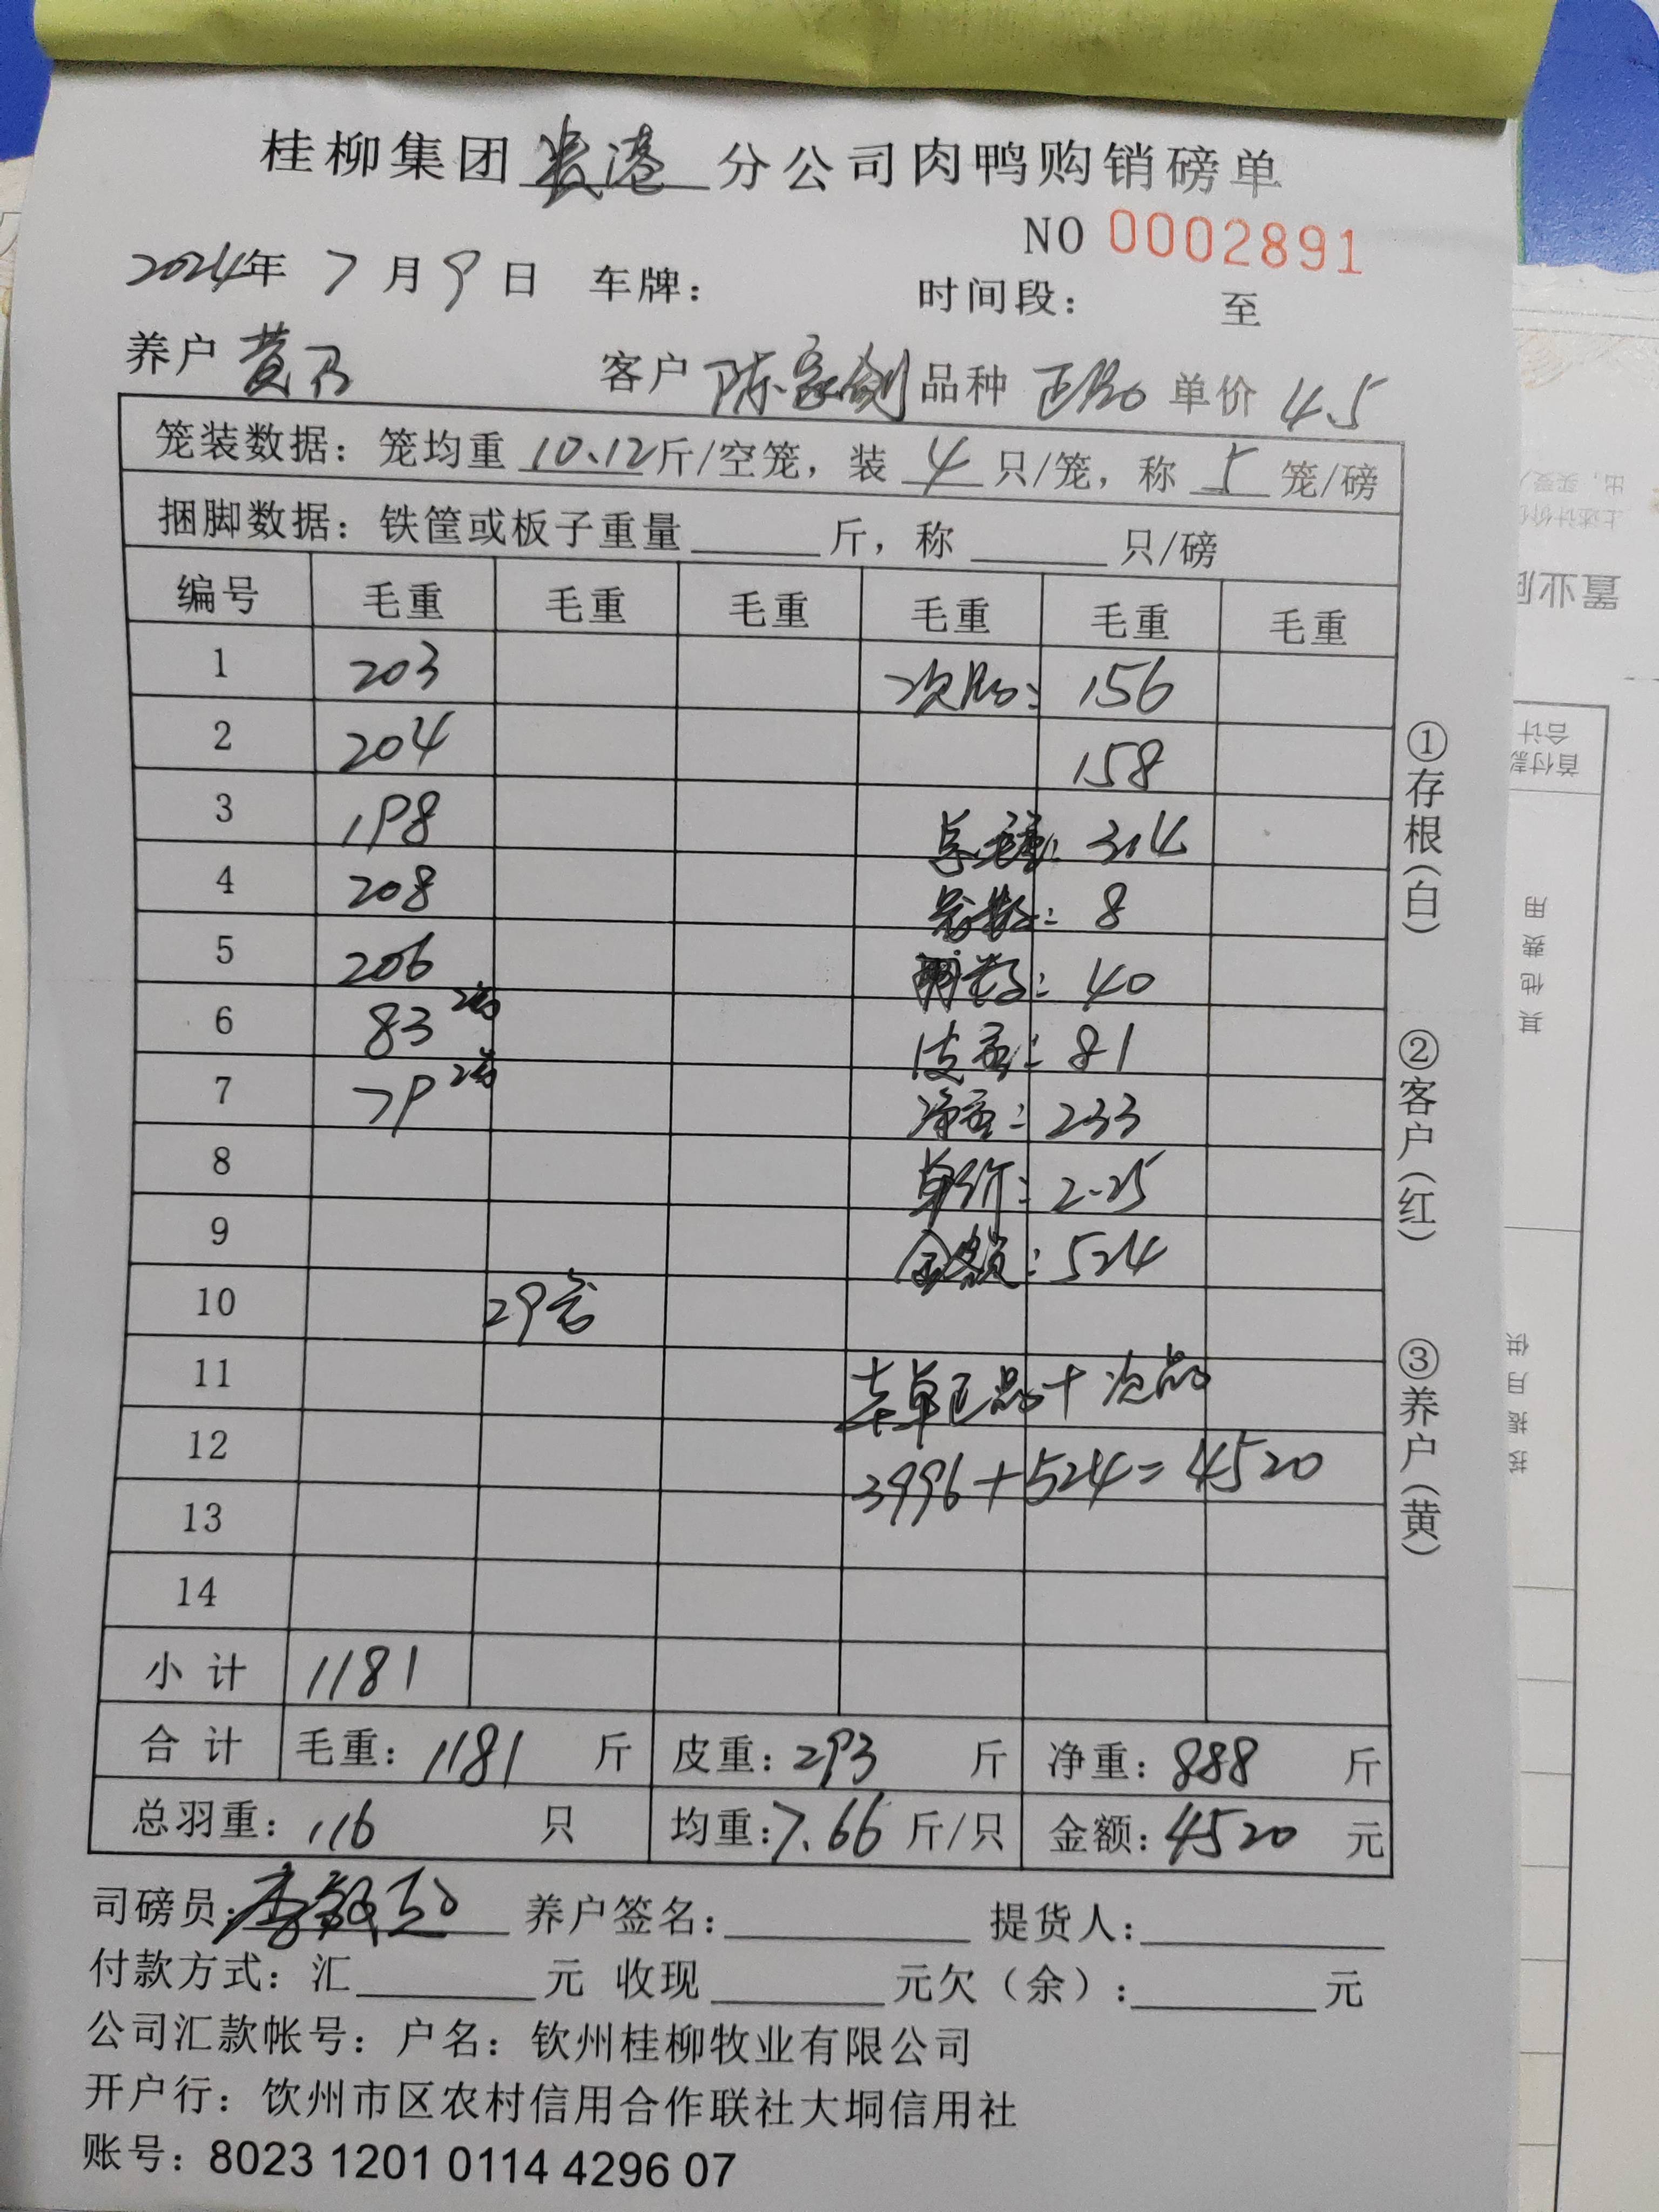 桂柳集团 张港 分公司肉鸭购销磅单
NO 0002891
2024年 7 月 9 日 车牌： 时间段： 至
养户 黄乃 客户 陈家剑 品种 正品 单价 4.5
笼装数据：笼均重 10.12 斤/空笼，装 4 只/笼，称 5 笼/磅
捆脚数据：铁筐或板子重量 斤，称 只/磅
编号 毛重 毛重 毛重 毛重 毛重 毛重
1 203 次品： 156
2 204 158
3 198 总毛重： 314
4 208 笼数： 8
5 206 只数： 40
6 83 2笼 皮重： 81
7 79 2笼 净重： 233
8 单价： 2.25
9 金额： 524
10 29笼
11 本单正品+次品
12 3996+524=4520
13
14
小 计 1181
合 计 毛重： 1181 斤 皮重： 293 斤 净重： 888 斤
总羽重： 116 只 均重： 7.66 斤/只 金额： 4520 元
司磅员： 养户签名： 提货人：
付款方式：汇 元 收现 元欠（余）： 元
公司汇款帐号：户名：钦州桂柳牧业有限公司
开户行：饮州市区农村信用合作联社大垌信用社
账号：8023 1201 0114 4296 07
①存根（白） ②客户（红） ③养户（黄）
置业
首付款
合计
其他费用
按揭月供